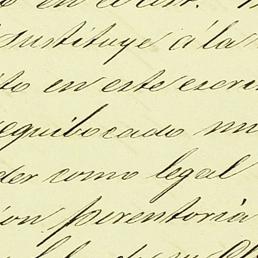 sustituye á la
to en este escri
equibocado mi
der como legal
ion perentoria